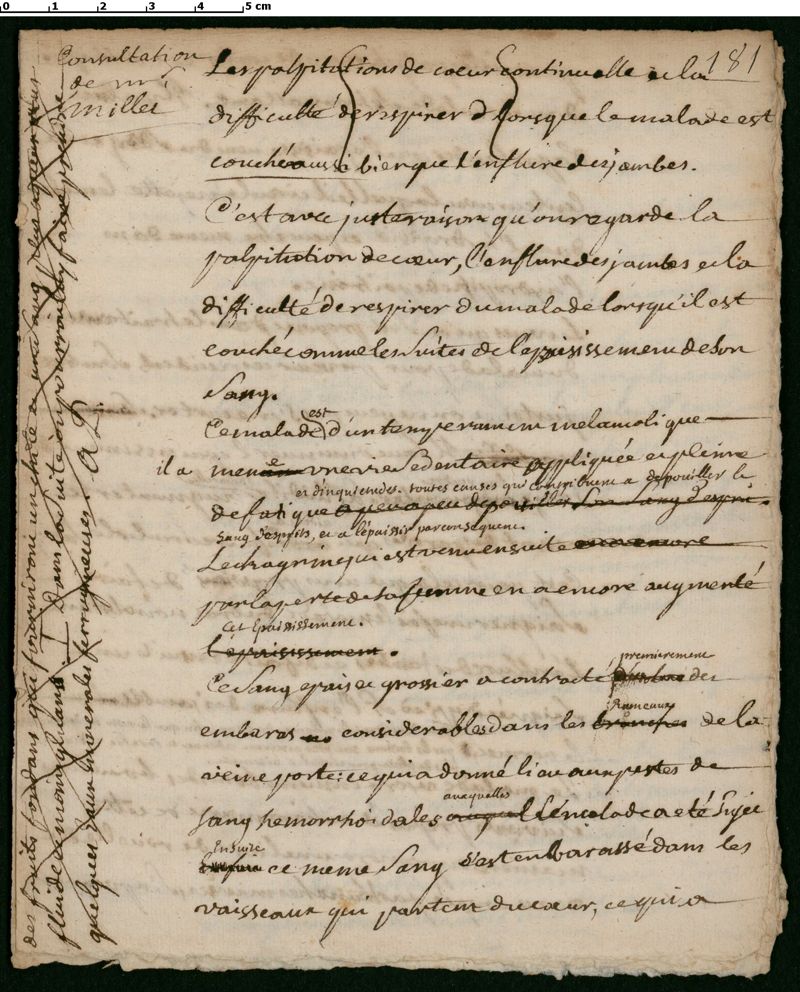 181
Consultation
de mr
millet
Les palpitations de cœur continuelle et la
difficulté de respirer d lorsque le malade est
couché aussi bien que l'enflure des jambes.
C'est avec juste raison qu'on regarde la
palpitation de cœur, l'enflure des jambes et la
difficulté de respirer du malade lorsqu'il est
couché comme les suites de l'epaisissement de son
sang.
Ce malade est d'un temperament melancolique
il a mené une vie sedentaire appliquée et pleine
et d'inquietudes. toutes causes qui contribuent a depouiller le
de fatigue a peu a peu depouiller son sang d'esprit.
sang d'esprits, et a l'épaissir par consequent.
Le chagrin qui est venu ensuite encore
par la perte de sa femme en a encore augmenté
cet Epaississement.
l'epaisissement.
premierement
Ce sang epais et grossier a contracté des
Rameaux
embaras considerables dans les branches de la
veine porte: ce qui a donné lieu aux pertes de
auxquelles
sang hemorrhoidales auquel le malade a eté sujet
Ensuite
ce meme sang s'est enbarassé dans les
vaisseaux qui partent du cœur, ce qui a
des fruits fondans qui fourniront un chile et un sang plus aqueux plus
fluide et moins brulant. Dans la suite on pourra luy faire prendre
quelques eaux minerales ferrugineuses. A D.